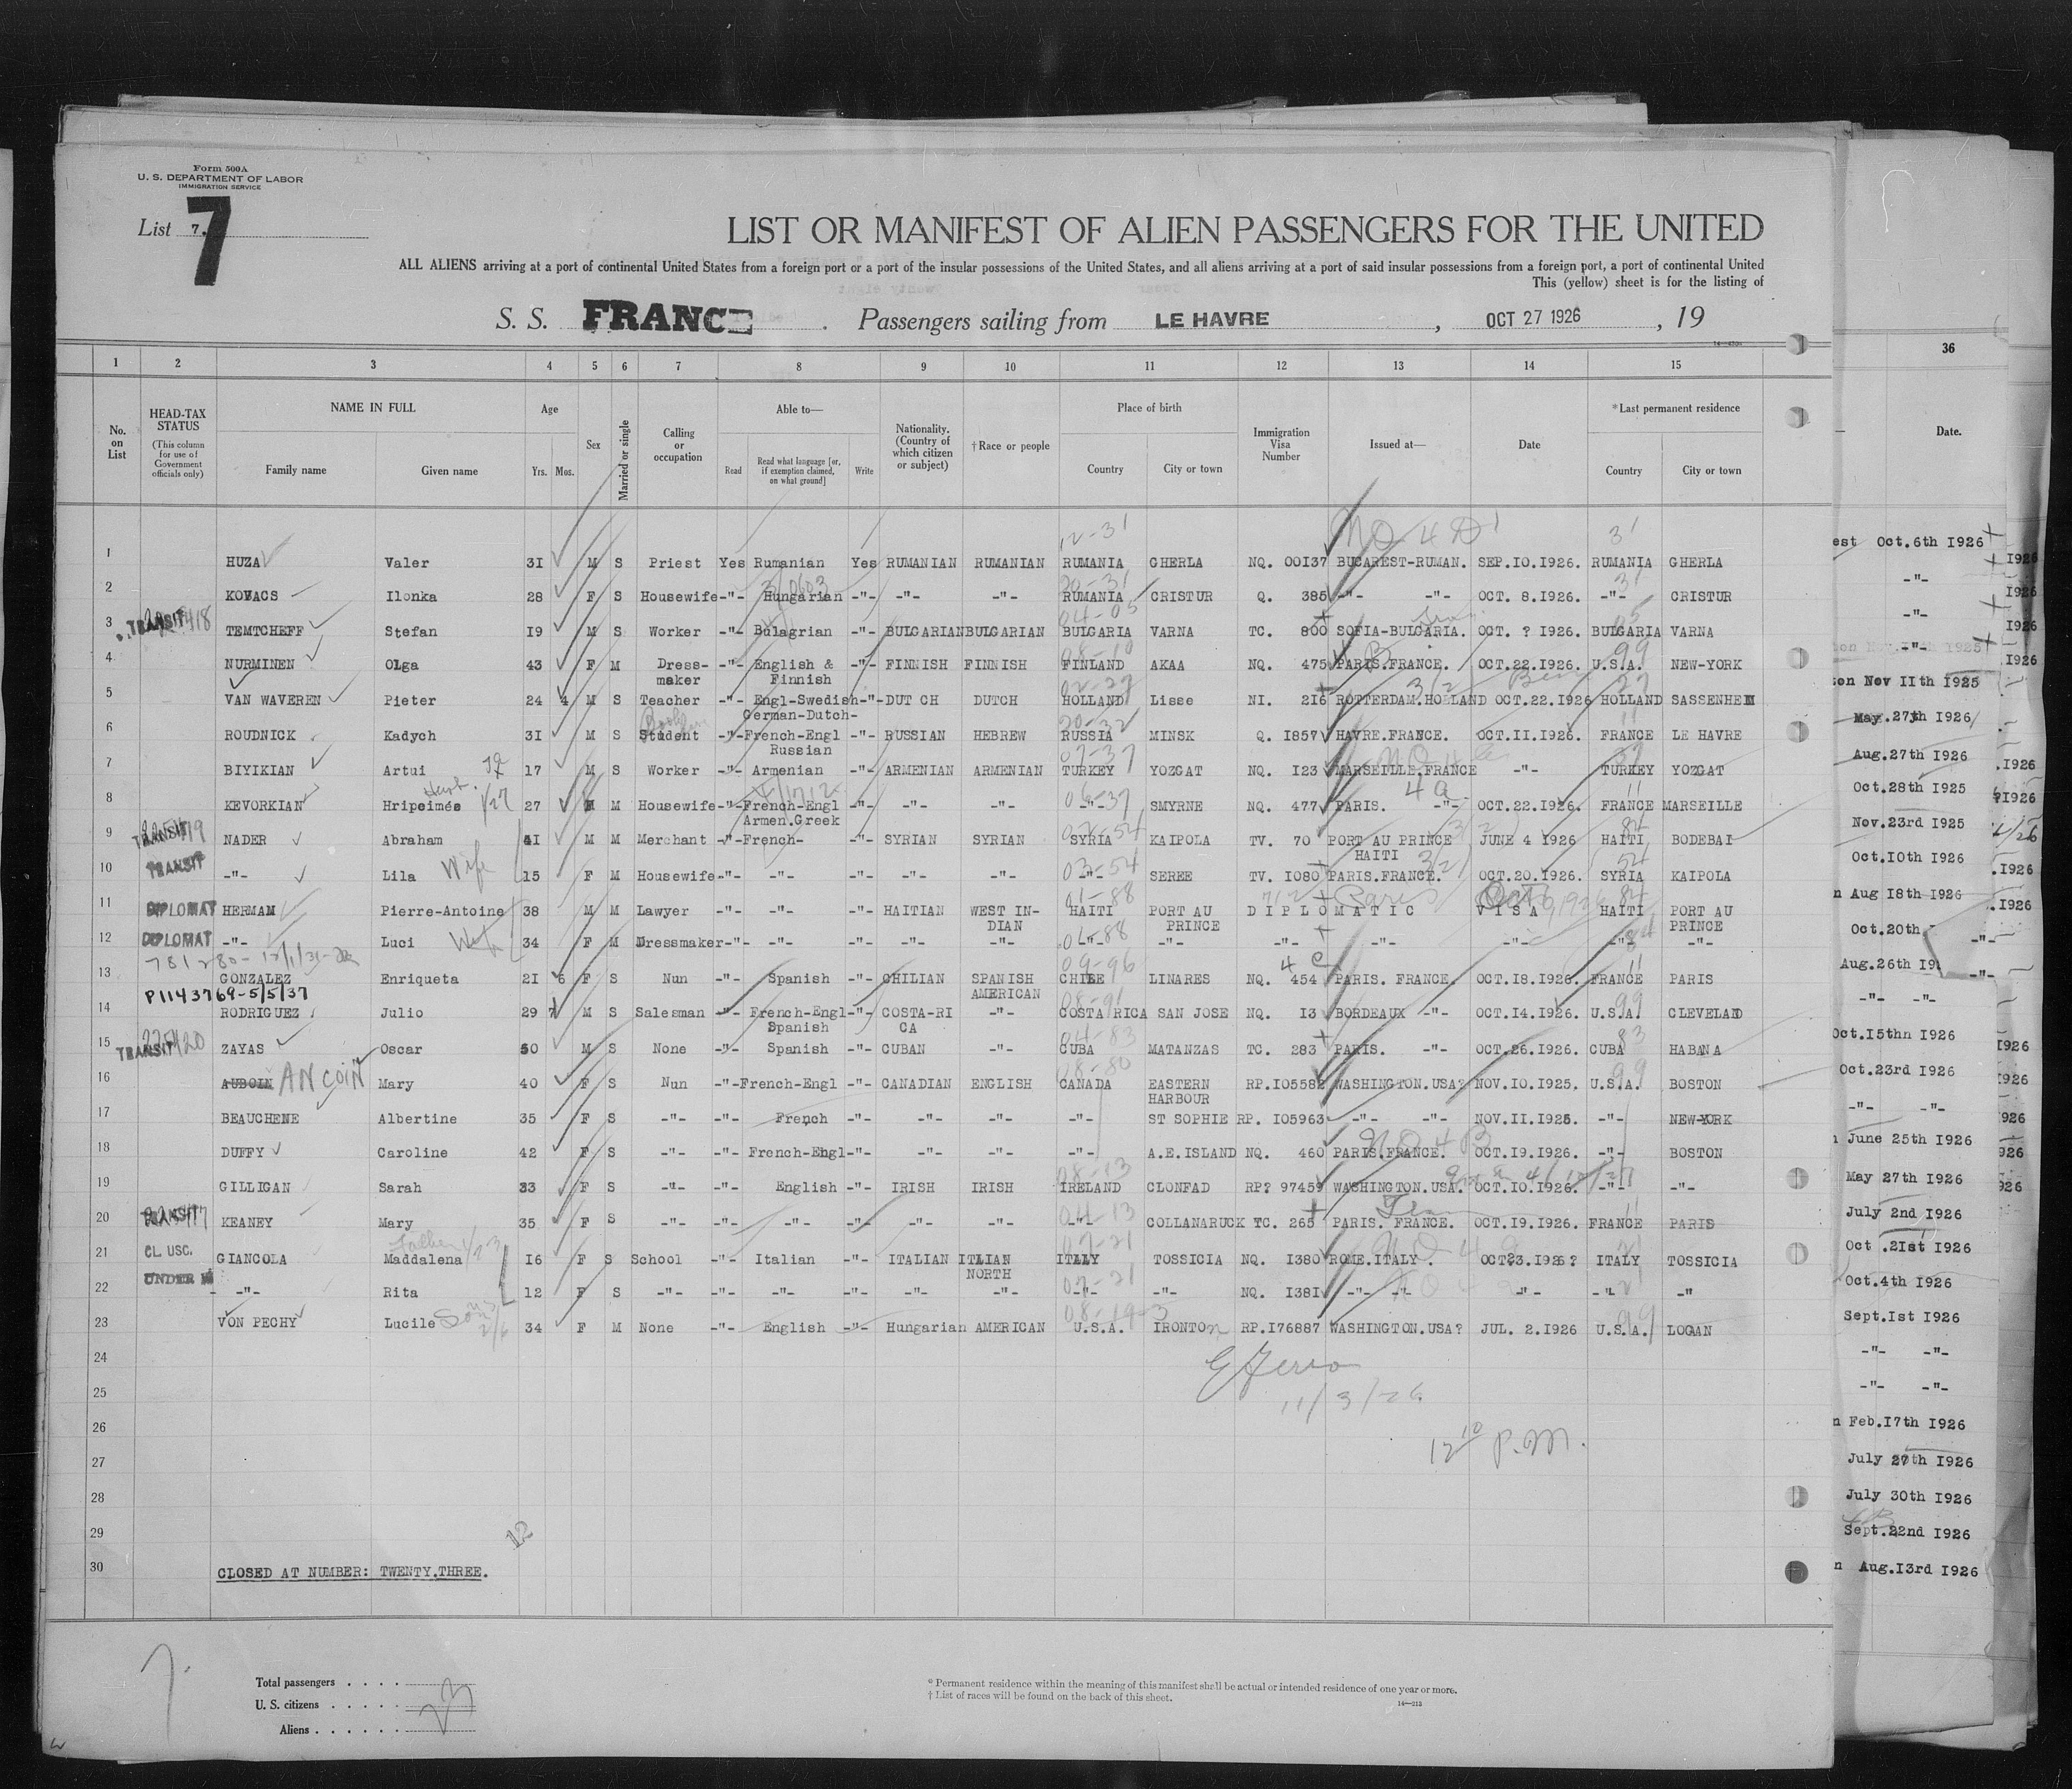 Form 500A
U. S. DEPARTMENT OF LABOR
IMMIGRATION SERVICE
List 7.
7
LIST OR MANIFEST OF ALIEN PASSENGERS FOR THE UNITED
ALL ALIENS arriving at a port of continental United States from a foreign port or a port of the insular possessions of the United States, and all aliens arriving at a port of said insular possessions from a foreign port, a port of continental United
This (yellow) sheet is for the listing of
S. S. FRANCE . Passengers sailing from LE HAVRE , OCT 27 1926 , 19
1 2 3 4 5 6 7 8 9 10 11 12 13 14 15 36
No. on List
HEAD-TAX STATUS (This column for use of Government officials only)
NAME IN FULL
Family name Given name
Age
Yrs. Mos.
Sex
Married or single
Calling or occupation
Able to—
Read Read what language [or, if exemption claimed, on what ground] Write
Nationality. (Country of which citizen or subject)
†Race or people
Place of birth
Country City or town
Immigration Visa Number
Issued at—
Date
*Last permanent residence
Country City or town
Date.
1 HUZA Valer 3I M S Priest Yes Rumanian Yes RUMANIAN RUMANIAN RUMANIA GHERLA NQ. 00I37 BUCAREST-RUMAN. SEP.IO.I926. RUMANIA GHERLA
2 KOVACS Ilonka 28 F S Housewife -"- Hungarian -"- -"- -"- RUMANIA CRISTUR Q. 385 -"- -"- OCT. 8.I926. -"- CRISTUR
3 TRANSIT TEMTCHEFF Stefan I9 M S Worker -"- Bulagrian -"- BULGARIAN BULGARIAN BULGARIA VARNA TC. 800 SOFIA-BULGARIA. OCT. ? I926. BULGARIA VARNA
4 NURMINEN Olga 43 F M Dress- -"- English & -"- FINNISH FINNISH FINLAND AKAA NQ. 475 PARIS.FRANCE. OCT.22.I926. U.S.A. NEW-YORK
maker Finnish
5 VAN WAVEREN Pieter 24 4 M S Teacher -"- Engl-Swedish -"- DUT CH DUTCH HOLLAND Lisse NI. 2I6 ROTTERDAM.HOLLAND OCT.22.I926 HOLLAND SASSENHEIM
German-Dutch-
6 ROUDNICK Kadych 3I M S Student -"- French-Engl -"- RUSSIAN HEBREW RUSSIA MINSK Q. I857 HAVRE.FRANCE. OCT.II.I926. FRANCE LE HAVRE
Russian
7 BIYIKIAN Artui I7 M S Worker -"- Armenian -"- ARMENIAN ARMENIAN TURKEY YOZGAT NQ. I23 MARSEILLE.FRANCE -"- TURKEY YOZGAT
8 KEVORKIAN Hripsimée 27 M Housewife -"- French-Engl -"- -"- -"- -"- SMYRNE NQ. 477 PARIS. -"- OCT.22.I926. FRANCE MARSEILLE
Armen.Greek
9 TRANSIT NADER Abraham 4I M M Merchant -"- French- -"- SYRIAN SYRIAN SYRIA KAIPOLA TV. 70 PORT AU PRINCE JUNE 4 I926 HAITI BODEBAI
HAITI
10 TRANSIT -"- Lila Wife I5 F M Housewife -"- -"- -"- -"- -"- -"- SEREE TV. I080 PARIS.FRANCE. OCT.20.I926. SYRIA KAIPOLA
11 DIPLOMAT HERMAN Pierre-Antoine 38 M M Lawyer -"- -"- -"- HAITIAN WEST IN- HAITI PORT AU D I P L O M A T I C V I S A HAITI PORT AU
DIAN PRINCE PRINCE
12 DIPLOMAT -"- Luci Wife 34 F M Dressmaker -"- -"- -"- -"- -"- -"- -"- -"- -"- -"- -"- -"-
13 GONZALEZ Enriqueta 2I 6 F S Nun -"- Spanish -"- CHILIAN SPANISH CHILE LINARES NQ. 454 PARIS. FRANCE. OCT.I8.I926. FRANCE PARIS
P1143769-5/5/37 AMERICAN
14 RODRIGUEZ Julio 29 7 M S Salesman -"- French-Engl -"- COSTA-RI -"- COSTA RICA SAN JOSE NQ. I3 BORDEAUX -"- OCT.I4.I926. U.S.A. CLEVELAND
Spanish CA
15 TRANSIT ZAYAS Oscar 50 M S None -"- Spanish -"- CUBAN -"- CUBA MATANZAS TC. 283 PARIS. -"- OCT.26.I926. CUBA HABANA
16 AUBOIN ANCOIN Mary 40 F S Nun -"- French-Engl -"- CANADIAN ENGLISH CANADA EASTERN RP.I05582 WASHINGTON.USA? NOV.IO.I925. U.S.A. BOSTON
HARBOUR
17 BEAUCHENE Albertine 35 F S -"- -"- French -"- -"- -"- -"- ST SOPHIE RP. I05963 -"- -"- NOV.II.I925. -"- NEW-YORK
18 DUFFY Caroline 42 F S -"- -"- French-Engl -"- -"- -"- -"- A.E.ISLAND NQ. 460 PARIS.FRANCE. OCT.I9.I926. -"- BOSTON
19 GILLIGAN Sarah 33 F S -"- -"- English -"- IRISH IRISH IRELAND CLONFAD RP? 97459 WASHINGTON.USA. OCT.IO.I926. -"- -"-
20 TRANSIT KEANEY Mary 35 F S -"- -"- -"- -"- -"- -"- -"- COLLANARUCK TC. 265 PARIS. FRANCE. OCT.I9.I926. FRANCE PARIS
21 CL. USC. GIANCOLA Maddalena I6 F S School -"- Italian -"- ITALIAN ITLIAN ITALY TOSSICIA NQ. I380 ROME.ITALY . OCT23.I926? ITALY TOSSICIA
UNDER NORTH
22 -"- -"- Rita I2 F S -"- -"- -"- -"- -"- -"- -"- -"- NQ. I38I -"- -"- -"- -"- -"
23 VON PECHY Lucile 34 F M None -"- English -"- Hungarian AMERICAN U.S.A. IRONTON RP.I76887 WASHINGTON.USA? JUL. 2.I926 U.S.A. LOGAN
24
25 11/3/26
26
27 12 10 P.M.
28
29
12
30 CLOSED AT NUMBER: TWENTY.THREE.
7.
Total passengers . . . .
U. S. citizens . . . . .
Aliens . . . . . .
23
* Permanent residence within the meaning of this manifest shall be actual or intended residence of one year or more.
† List of races will be found on the back of this sheet.
14—213
est Oct.6th I926
-"-
-"-
-"-
on Nov IIth I925
May.27th I926
Aug.27th I926
Oct.28th I925
Nov.23rd I925
Oct.I0th I926
n Aug I8th I926
Oct.20th
Aug.26th I9
-"- -"-
Oct.I5thn I926
Oct.23rd I926
-"- -"-
June 25th I926
May 27th I926
July 2nd I926
Oct .2Ist I926
Oct.4th I926
Sept.Ist I926
-"- -"-
-"- -"-
n Feb.I7th I926
July 27th I926
July 30th I926
Sept.22nd I926
n Aug.I3rd I926